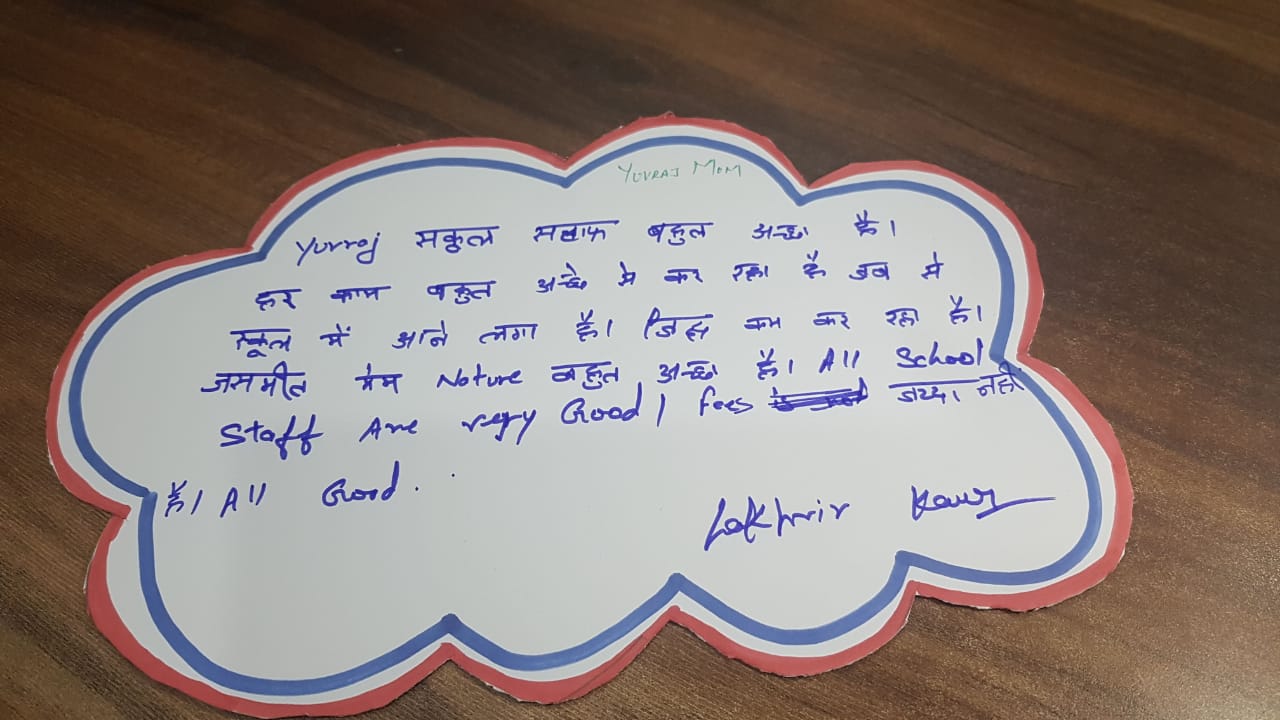 YUVRAJ MOM
Yuvraj सकुल सटाफ बहुत अच्छा है।
हर काम बहुत अच्छे से कर रहा है जब से
स्कूल में आने लगा है। जिद्द कम कर रहा है।
जसमीत मेम Nature बहुत अच्छा है। All School
Staff Are very Good। fees जय्दा नही
है। All Good.
Lakhvir Kaur